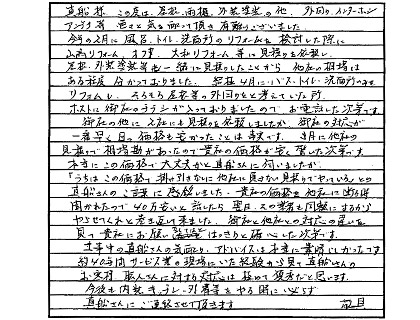 真船様 この度は、屋根、雨樋、外装塗装の他、外回り、インターホン
アンテナ等 色々と気を配って頂き有難うございました
今年の2月に風呂、トイレ、洗面所のリフォームを検討した際に
リフォーム等に見積りを依頼し
屋根・外装塗装等も一緒に見積りしたことから 他社の相場は
ある程度分かっておりました。 結程4月にバス・トイレ・洗面所のみを
リフォームし、そろそろ屋根等の外回りをと考えていた所
ポストに御社のチラシが入っておりましたので お電話した次第です。
御社の他に2社にも見積りを依頼しましたが、御社の対応が
一番早く且つ価格も安かったことは事実です。 2月に他社の
見積りで相場勘があったので貴社の価格が安く驚いた次第です。
本当にこの価格で大丈夫かと真船さんに伺いましたが、
「うちはこの価格で掛け引きなしに他社に負けない見積りでやっている」との
真船さんの言葉に感銘しました。貴社の価格を他社に断る時
聞かれたので40万安いと話したら 翌日、その業者も同額にするから
やらせてくれと言って来ました。 御社と他社との対応の違いを
見て貴社にお願いはっきりと確心した次第です。
工事中の真船さんの気配り、アドバイスは本当に素晴しかったです
約40年間サービス業の現場にいた経験から見て真船さんの
お客様、職人さんに対する対応は極めて優秀だと思います。
今後も内装、キッチン、外構等をやる時には必ず
真船さんにご連絡させて頂きます